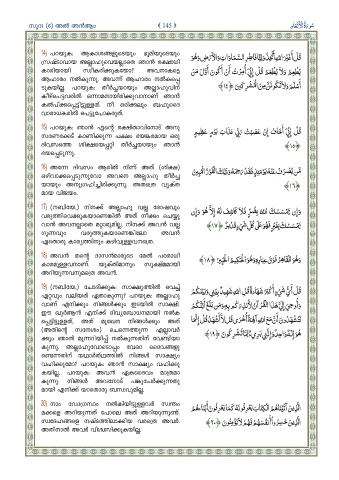 സൂറ: (6) അൽ അൻആം
﴾ 145 ﴿
سُورَةُ الْأَنْعَامِ
14) പറയുക: ആകാശങ്ങളുടെയും ഭൂമിയുടെയും
സ്രഷ്ടാവായ അല്ലാഹുവെയല്ലാതെ ഞാൻ രക്ഷാധി
കാരിയായി സ്വീകരിക്കുകയോ? അവനാകട്ടെ
ആഹാരം നൽകുന്നു. അവന്ന് ആഹാരം നൽകപ്പെ
ടുകയില്ല. പറയുക: തീർച്ചയായും അല്ലാഹുവിന്ന്
കീഴ്പെട്ടവരിൽ ഒന്നാമനായിരിക്കുവാനാണ് ഞാൻ
കൽപിക്കപ്പെട്ടിട്ടുള്ളത്. നീ ഒരിക്കലും ബഹുദൈ
വാരാധകരിൽ പെട്ടുപോകരുത്.
قُلْ أَغَيْرَ اللَّهِ أَتَّخِذُ وَلِيًّا فَاطِرِ السَّمَاوَاتِ وَالْأَرْضِ وَهُوَ
يُطْعِمُ وَلَا يُطْعَمُ قُلْ إِنِّي أُمِرْتُ أَنْ أَكُونَ أَوَّلَ مَنْ
أَسْلَمَ وَلَا تَكُونَنَّ مِنَ الْمُشْرِكِينَ ﴿١٤﴾
15) പറയുക: ഞാൻ എന്റെ രക്ഷിതാവിനോട് അനു
സരണക്കേട് കാണിക്കുന്ന പക്ഷം ഭയങ്കരമായ ഒരു
ദിവസത്തെ ശിക്ഷയെപ്പറ്റി തീർച്ചയായും ഞാൻ
ഭയപ്പെടുന്നു.
قُلْ إِنِّي أَخَافُ إِنْ عَصَيْتُ رَبِّي عَذَابَ يَوْمٍ عَظِيمٍ
﴿١٥﴾
16) അന്നേ ദിവസം ആരിൽ നിന്ന് അത് (ശിക്ഷ)
ഒഴിവാക്കപ്പെടുന്നുവോ അവനെ അല്ലാഹു തീർച്ച
യായും അനുഗ്രഹിച്ചിരിക്കുന്നു. അതത്രെ വ്യക്ത
മായ വിജയം.
مَنْ يُصْرَفْ عَنْهُ يَوْمَئِذٍ فَقَدْ رَحِمَهُ وَذَٰلِكَ الْفَوْزُ الْمُبِينُ
﴿١٦﴾
17) (നബിയേ,) നിനക്ക് അല്ലാഹു വല്ല ദോഷവും
വരുത്തിവെക്കുകയാണെങ്കിൽ അത് നീക്കം ചെയ്യു
വാൻ അവനല്ലാതെ മറ്റാരുമില്ല. നിനക്ക് അവൻ വല്ല
ഗുണവും വരുത്തുകയാണെങ്കിലോ അവൻ
ഏതൊരു കാര്യത്തിനും കഴിവുള്ളവനത്രെ.
وَإِنْ يَمْسَسْكَ اللَّهُ بِضُرٍّ فَلَا كَاشِفَ لَهُ إِلَّا هُوَ وَإِنْ
يَمْسَسْكَ بِخَيْرٍ فَهُوَ عَلَىٰ كُلِّ شَيْءٍ قَدِيرٌ ﴿١٧﴾
18) അവൻ തന്റെ ദാസൻമാരുടെ മേൽ പരമാധി
കാരമുള്ളവനാണ്. യുക്തിമാനും സൂക്ഷ്മമായി
അറിയുന്നവനുമത്രെ അവൻ.
وَهُوَ الْقَاهِرُ فَوْقَ عِبَادِهِ وَهُوَ الْحَكِيمُ الْخَبِيرُ ﴿١٨﴾
19) (നബിയേ,) ചോദിക്കുക: സാക്ഷ്യത്തിൽ വെച്ച്
ഏറ്റവും വലിയത് ഏതാകുന്നു? പറയുക: അല്ലാഹു
വാണ് എനിക്കും നിങ്ങൾക്കും ഇടയിൽ സാക്ഷി.
ഈ ഖുർആൻ എനിക്ക് ദിവ്യബോധനമായി നൽക
പ്പെട്ടിട്ടുള്ളത്, അത് മുഖേന നിങ്ങൾക്കും അത്
(അതിന്റെ സന്ദേശം) ചെന്നെത്തുന്ന എല്ലാവർ
ക്കും ഞാൻ മുന്നറിയിപ്പ് നൽകുന്നതിന് വേണ്ടിയാ
കുന്നു. അല്ലാഹുവോടൊപ്പം വേറെ ദൈവങ്ങളു
ണ്ടെന്നതിന് യഥാർത്ഥത്തിൽ നിങ്ങൾ സാക്ഷ്യം
വഹിക്കുമോ? പറയുക: ഞാൻ സാക്ഷ്യം വഹിക്കു
കയില്ല. പറയുക: അവൻ ഏകദൈവം മാത്രമാ
കുന്നു. നിങ്ങൾ അവനോട് പങ്കുചേർക്കുന്നതു
മായി എനിക്ക് യാതൊരു ബന്ധവുമില്ല.
قُلْ أَيُّ شَيْءٍ أَكْبَرُ شَهَادَةً قُلِ اللَّهُ شَهِيدٌ بَيْنِي وَبَيْنَكُمْ
وَأُوحِيَ إِلَيَّ هَٰذَا الْقُرْآنُ لِأُنْذِرَكُمْ بِهِ وَمَنْ بَلَغَ أَئِنَّكُمْ
لَتَشْهَدُونَ أَنَّ مَعَ اللَّهِ آلِهَةً أُخْرَىٰ قُلْ لَا أَشْهَدُ قُلْ إِنَّمَا
هُوَ إِلَٰهٌ وَاحِدٌ وَإِنَّنِي بَرِيءٌ مِمَّا تُشْرِكُونَ ﴿١٩﴾
20) നാം വേദഗ്രന്ഥം നൽകിയിട്ടുള്ളവർ സ്വന്തം
മക്കളെ അറിയുന്നത് പോലെ അത് അറിയുന്നുണ്ട്.
സ്വദേഹങ്ങളെ നഷ്ടത്തിലാക്കിയ വരത്രെ അവർ.
അതിനാൽ അവർ വിശ്വസിക്കുകയില്ല.
الَّذِينَ آتَيْنَاهُمُ الْكِتَابَ يَعْرِفُونَهُ كَمَا يَعْرِفُونَ أَبْنَاءَهُمُ
الَّذِينَ خَسِرُوا أَنْفُسَهُمْ فَهُمْ لَا يُؤْمِنُونَ ﴿٢٠﴾